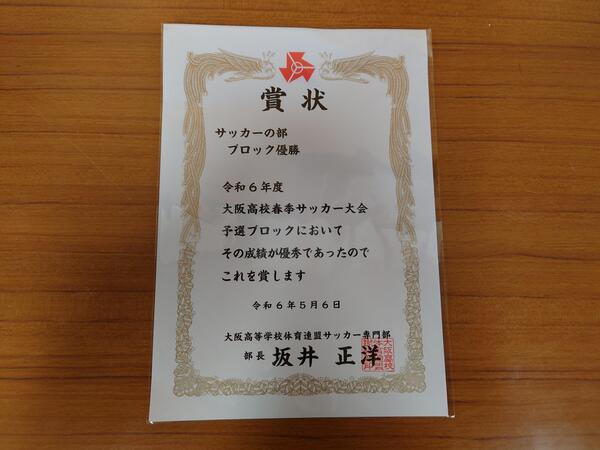 賞状
サッカーの部
ブロック優勝
令和６年度
大阪高校春季サッカー大会
予選ブロックにおいて
その成績が優秀であったので
これを賞します
令和６年５月６日
大阪高等学校体育連盟サッカー専門部
部長 坂井 正洋